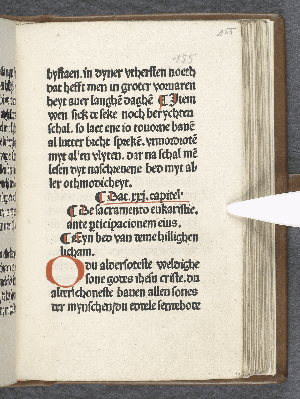 155
155
bystaen. in dyner vthersten noeth
dat hefft men in groter vornaren
heyt auer langhē daghē ¶ Jtem
wen sick te seke noch berychten
schal. so laet ene io touorne bauē
al lutter bicht spreke. vrmodicrē
myt al en vlyten. dar na schal mē
lesen dyt naschreuene bed myt al-
ler othmodicheyt.
¶ Dat. xxj. capittel
¶ De sacramento eukaristie.
ante pticipacionem eius.
¶ Eyn bed van deme hillighen
licham.
O Du aldersoteste weldighe
sone godes ihesu criste. du
alderschoneste bauen allen sones
der mynschen/du eddele